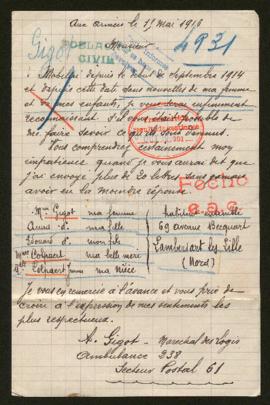 Aux Armées le 15 Mai 1916
Gigot
4931
Monsieur
CIVIL
Mobilisé depuis le début de Septembre 1914
et depuis cette date sans nouvelles de ma femme
et mes enfants, je vous serai infiniment
reconnaissant s'il vous était possible de
me faire savoir ce qu'ils sont devenus.
Vous comprendrez certainement mon
impatience quand je vous aurai dit que
j'ai envoyé plus de 20 lettres sans jamais
avoir eu la moindre réponse.
Mme Gigot ma femme
Anna d° ma fille
Edouard d° mon fils
Mme Colpaert ma belle mère
Colpaert ma nièce
habitant ensemble
69 avenue Becquart
Lambersart lez Lille
(Nord)
Je vous en remercie à l'avance et vous prie de
croire à l'expression de mes sentiments les
plus respectueux.
A. Gigot - Maréchal des Logis
Ambulance 238
Secteur Postal 61